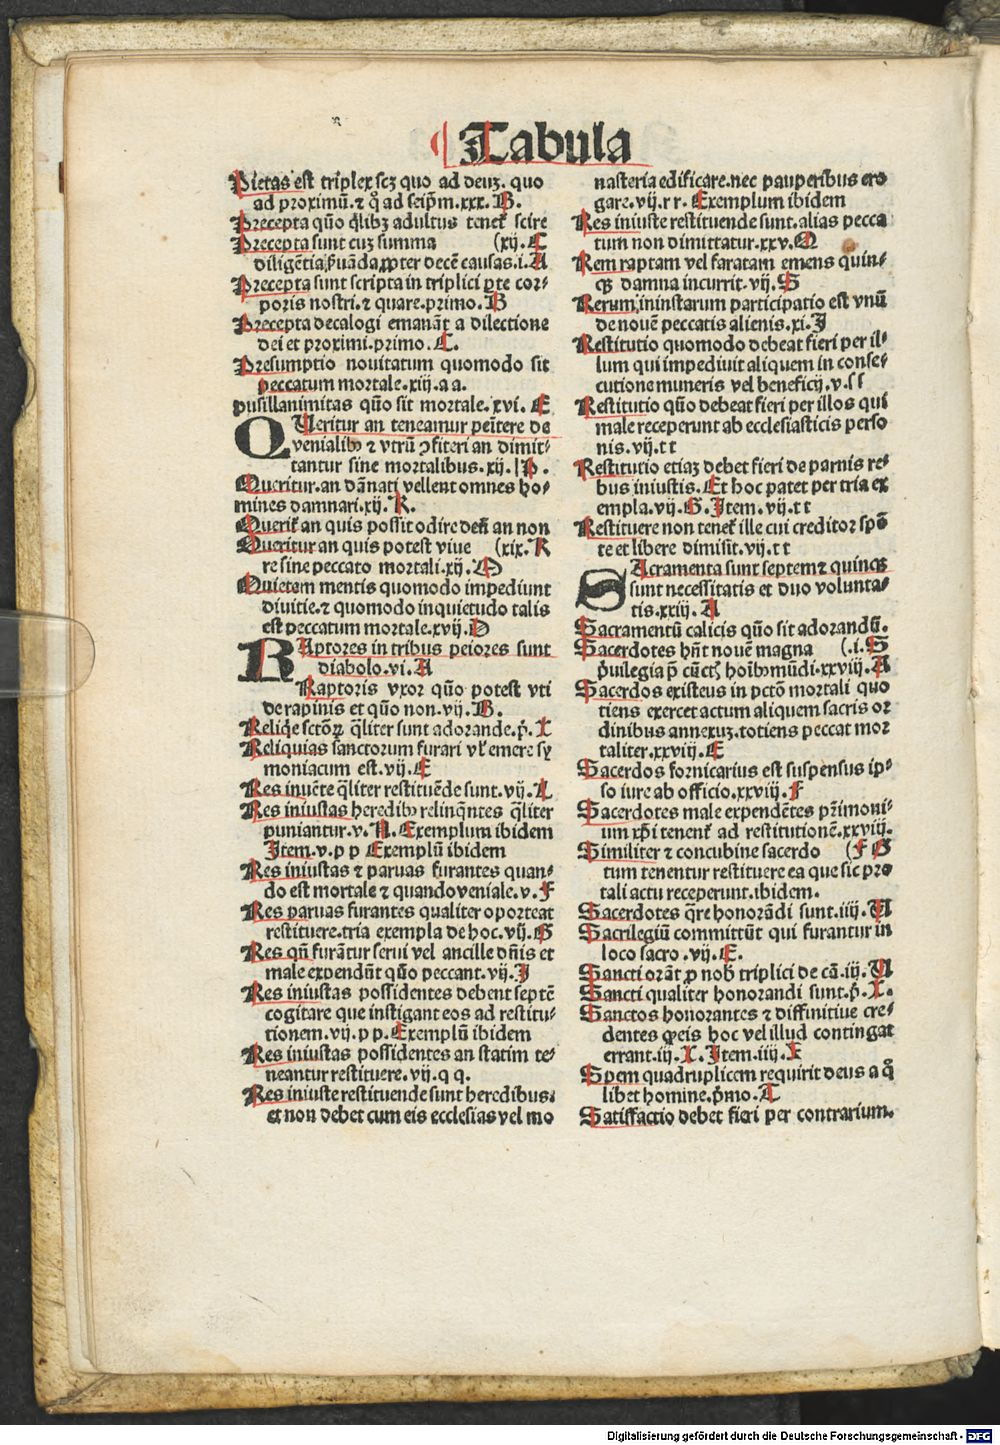 Tabula
Pietas est triplex scꝫ quo ad deuꝫ. quo
ad proximū. ⁊ qͦ ad seip̄m.xxx.B.
Precepta qūo q̄libꝫ adultus tenet᷑ scire
Precepta sunt cuꝫ summa (xij.C
diligētia ꝑuāda ꝓpter decē causas.i.A
Precepta sunt scripta in triplici ꝑte cor⸗
poris nostri.⁊ quare.primo.B
Precepta decalogi emanāt a dilectione
dei et proximi.primo.C.
Presumptio nouitatum quomodo sit
peccatum mortale.xiij.a a.
pusillanimitas qūo sit mortale.xvi.E
QUeritur an teneamur peītere de
venialibꝰ ⁊ vtrū ꝯfiteri an dimit⸗
tantur sine mortalibus.xij.P.
Queritur.an dānati vellent omnes ho⸗
mines damnari.xij.R.
Querit᷑ an quis possit odire deū an non
Queritur an quis potest viue (xix.K
re sine peccato mortali.xij.O
Quietam mentis quomodo impediunt
diuitie.⁊ quomodo inquietudo talis
est peccatum mortale.xvij.D
RAptores in tribus peiores sunt
diabolo.vi.A
Raptoris vxor qūo potest vti
de rapinis et qūo non.vij.B.
Reliqͥe sctōꝝ q̄liter sunt adorande.p̄.X
Reliquias sanctorum furari vl̓ emere sy
moniacum est.vij.E
Res inuēte q̄liter restituēde sunt.vij.L
Res iniustas heredibꝰ relinq̄ntes q̄liter
puniantur.v.N.Exemplum ibidem
Item.v.p p Exemplū ibidem
Res iniustas ⁊ paruas furantes quan⸗
do est mortale ⁊ quando veniale.v.F
Res paruas furantes qualiter oporteat
restituere.tria exempla de hoc.vij.G
Res qn̄ furātur serui vel ancille dn̄is et
male expendūt qūo peccant.vij.I
Res iniustas possidentes debent septē
cogitare que instigant eos ad restitu⸗
tionem.vij.p p.Exemplū ibidem
Res iniustas possidentes an statim te⸗
neantur restituere.vij.q q.
Res iniuste restituende sunt heredibus.
et non debet cum eis ecclesias vel mo
nasteria edificare.nec pauperibus ero
gare.vij.r r.Exemplum ibidem
Res iniuste restituende sunt.alias pecca
tum non dimittatur.xxv.M
Rem raptam vel furatam emens quin⸗
qꝫ damna incurrit.vij.S
Rerum iniustarum participatio est vnū
de nouē peccatis alienis.xi.I
Restitutio quomodo debeat fieri per il⸗
lum qui impediuit aliquem in conse⸗
cutione muneris vel beneficij.v.ſſ
Restitutio qūo debeat fieri per illos qui
male receperunt ab ecclesiasticis perso
nis.vij.t t
Restitutio etiaꝫ debet fieri de paruis re⸗
bus iniustis.Et hoc patet per tria ex
empla.vij.G.Item.vij.t t
Restituere non tenet᷑ ille cui creditor spō
te et libere dimisit.vij.t t
SAcramenta sunt septem ⁊ quinqꝫ
sunt necessitatis et duo volunta⸗
tis.xxiij.A
Sacramentū calicis qūo sit adorandū.
Sacerdotes hn̄t nouē magna (.i.S
p̄uilegia p̄ cūctꝭ hoībꝰ mūdi.xxviij.A
Sacerdos existens in pctō mortali quo
tiens exercet actum aliquem sacris or
dinibus annexuꝫ.totiens peccat mor
taliter.xxviij.E
Sacerdos fornicarius est suspensus ip⸗
so iure ab officio.xxviij.F
Sacerdotes male expendētes pr̄imoni⸗
um xp̄i tenent᷑ ad restitutionē.xxviij.
Similiter ⁊ concubine sacerdo (F G
tum tenentur restituere ea que sic pro
tali actu receperunt.ibidem.
Sacerdotes q̄re honorādi sunt.iiij.N
Sacrilegiū committūt qui furantur in
loco sacro.vij.E.
Sancti orāt ꝓ nob̓ triplici de cā.iij.A
Sancti qualiter honorandi sunt.p̄.X.
Sanctos honorantes ⁊ diffinitiue cre⸗
dentes ꝙ eis hoc vel illud contingat
errant.iij.X.Item.iiij.K
Spem quadruplicem requirit deus a qͦ
libet homine.p̄mo.T
Satisfactio debet fieri per contrarium.
Digitalisierung gefördert durch die Deutsche Forschungsgemeinschaft - DFG